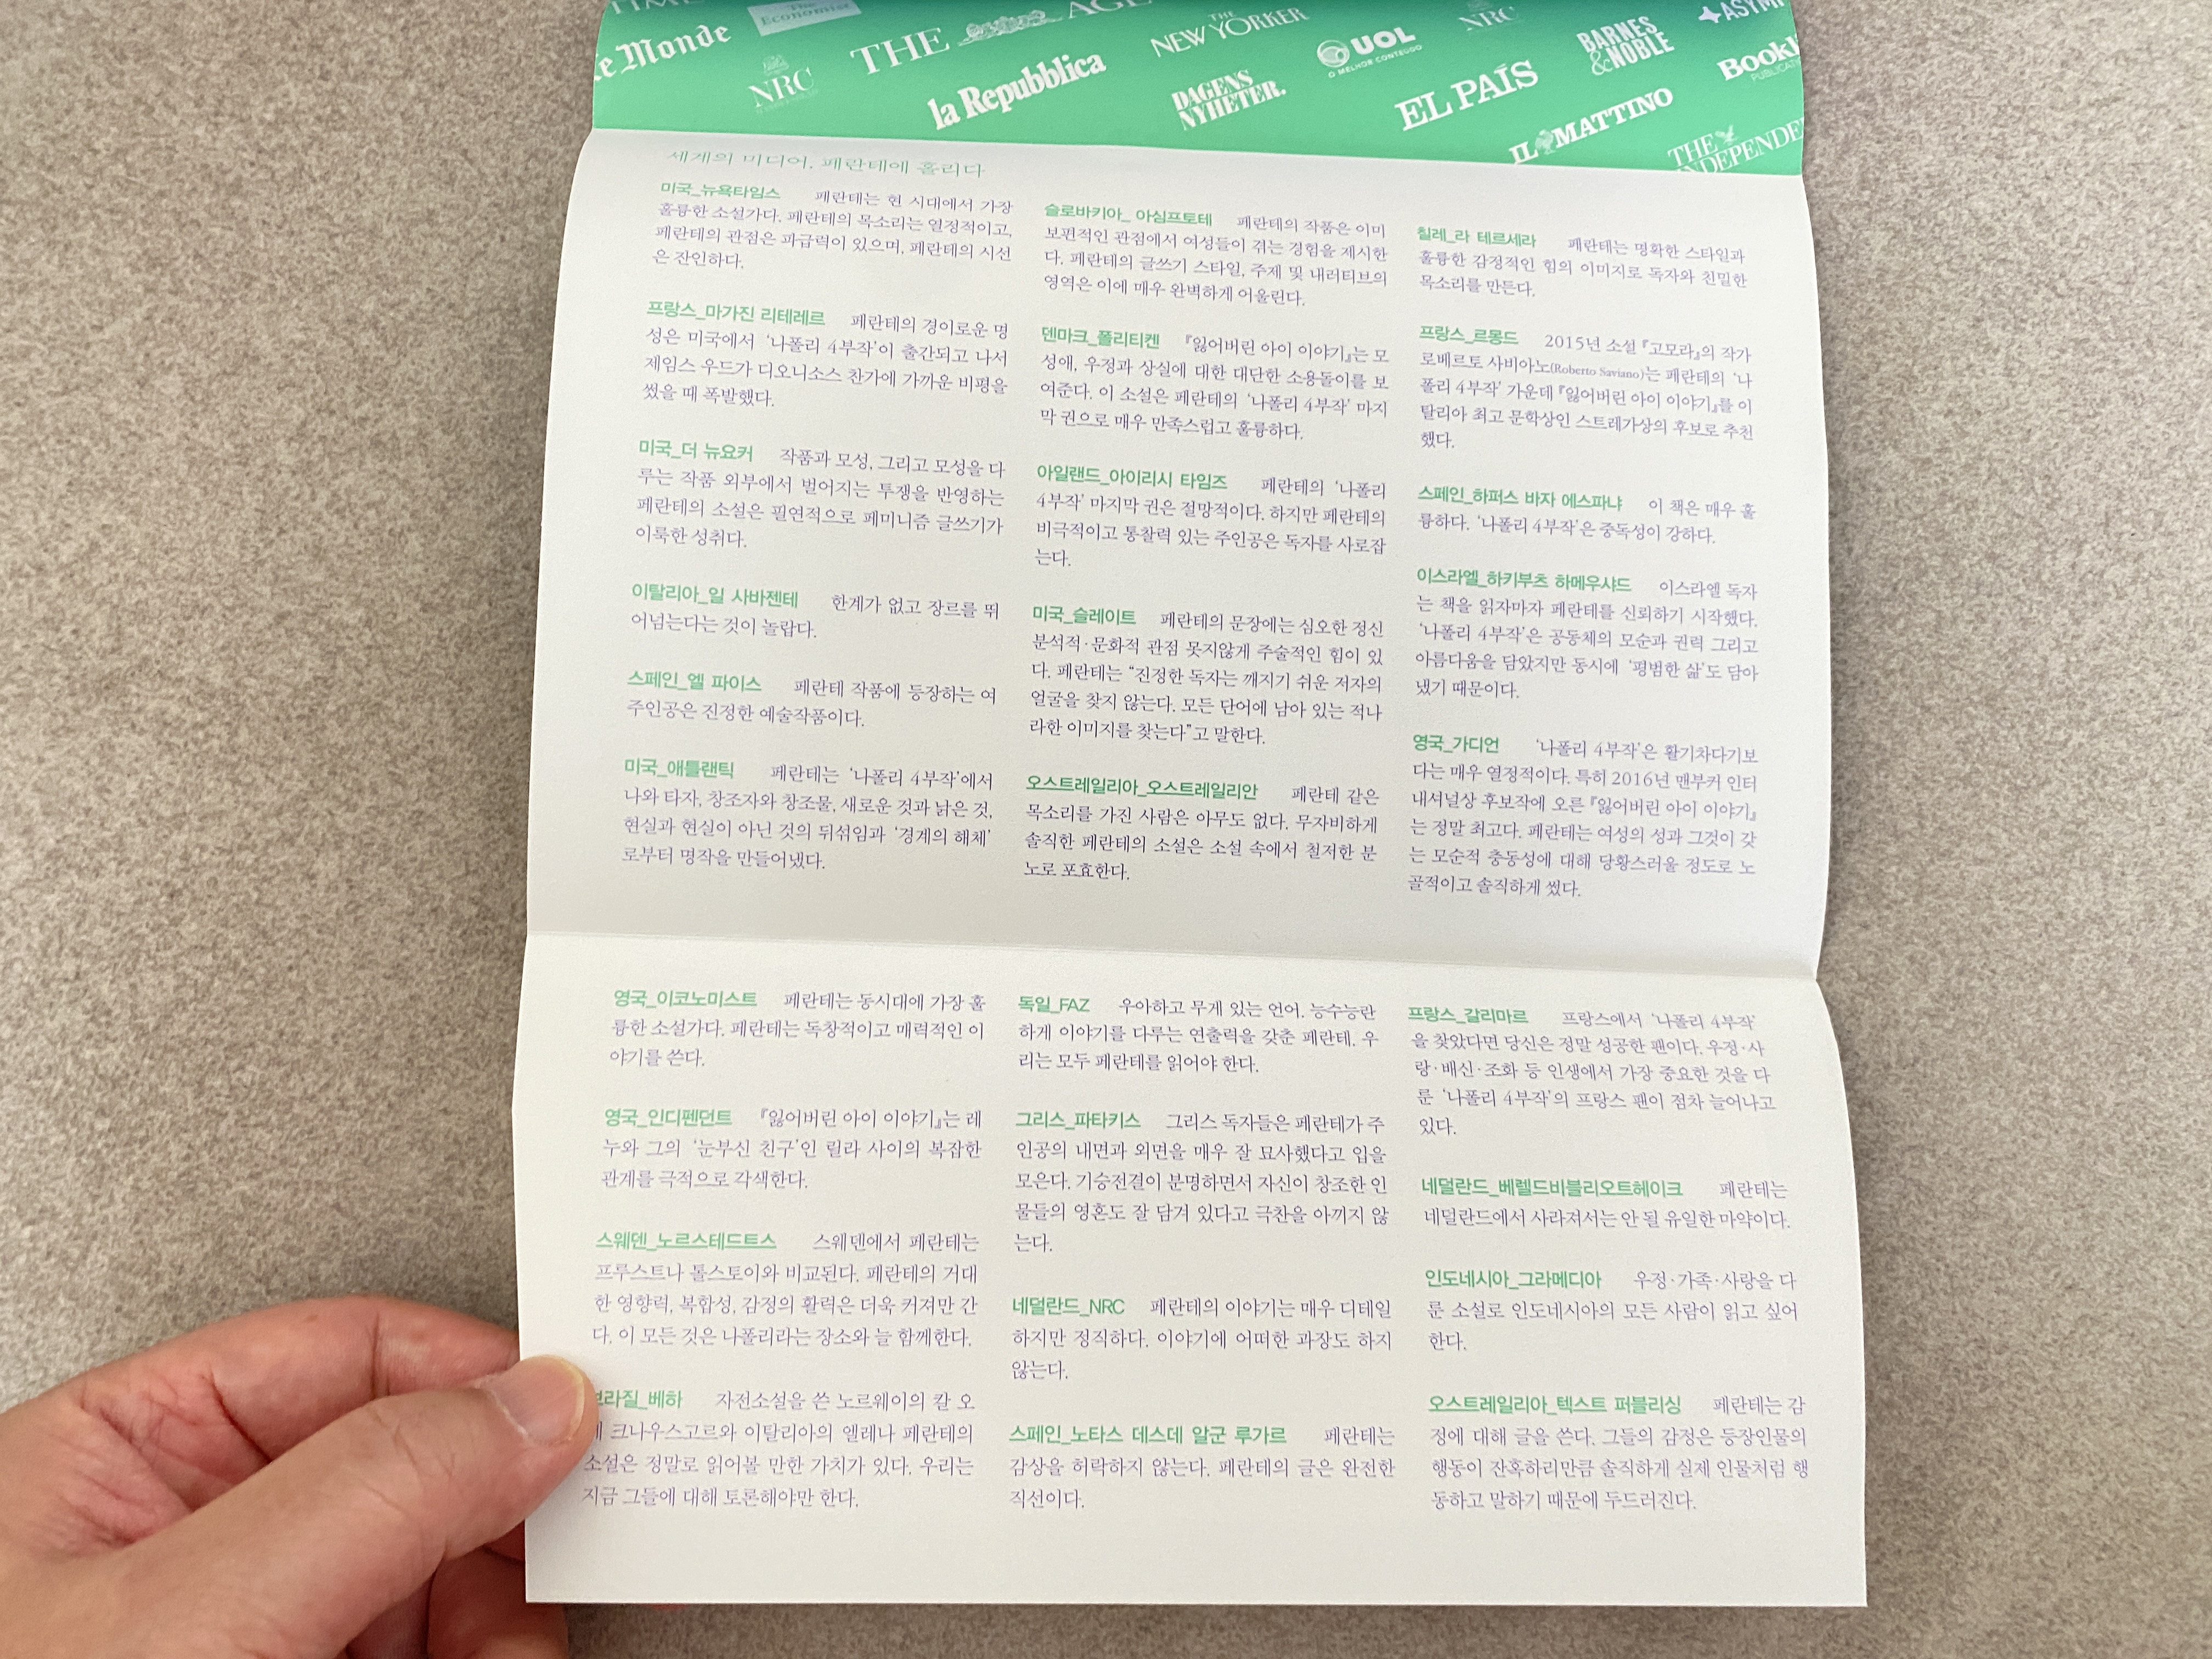 TIME
The Economist
THE AGE
THE NEW YORKER
NRC
ASYM
le Monde
NRC
la Repubblica
DAGENS NYHETER.
UOL
O MELHOR CONTEÚDO
EL PAÍS
BARNES &NOBLE
IL MATTINO
THE INDEPENDE
세계의 미디어, 페란테에 홀리다
미국_뉴욕타임스 페란테는 현 시대에서 가장
훌륭한 소설가다. 페란테의 목소리는 열정적이고,
페란테의 관점은 파급력이 있으며, 페란테의 시선
은 잔인하다.
프랑스_마가진 리테레르 페란테의 경이로운 명
성은 미국에서 ‘나폴리 4부작’이 출간되고 나서
제임스 우드가 디오니소스 찬가에 가까운 비평을
썼을 때 폭발했다.
미국_더 뉴요커 작품과 모성, 그리고 모성을 다
루는 작품 외부에서 벌어지는 투쟁을 반영하는
페란테의 소설은 필연적으로 페미니즘 글쓰기가
이룩한 성취다.
이탈리아_일 사바젠테 한계가 없고 장르를 뛰
어넘는다는 것이 놀랍다.
스페인_엘 파이스 페란테 작품에 등장하는 여
주인공은 진정한 예술작품이다.
미국_애틀랜틱 페란테는 ‘나폴리 4부작’에서
나와 타자, 창조자와 창조물, 새로운 것과 낡은 것,
현실과 현실이 아닌 것의 뒤섞임과 ‘경계의 해체’
로부터 명작을 만들어냈다.
슬로바키아_ 아심프토테 페란테의 작품은 이미
보편적인 관점에서 여성들이 겪는 경험을 제시한
다. 페란테의 글쓰기 스타일, 주제 및 내러티브의
영역은 이에 매우 완벽하게 어울린다.
덴마크_폴리티켄 『잃어버린 아이 이야기』는 모
성애, 우정과 상실에 대한 대단한 소용돌이를 보
여준다. 이 소설은 페란테의 ‘나폴리 4부작’ 마지
막 권으로 매우 만족스럽고 훌륭하다.
아일랜드_아이리시 타임즈 페란테의 ‘나폴리
4부작’ 마지막 권은 절망적이다. 하지만 페란테의
비극적이고 통찰력 있는 주인공은 독자를 사로잡
는다.
미국_슬레이트 페란테의 문장에는 심오한 정신
분석적·문화적 관점 못지않게 주술적인 힘이 있
다. 페란테는 “진정한 독자는 깨지기 쉬운 저자의
얼굴을 찾지 않는다. 모든 단어에 남아 있는 적나
라한 이미지를 찾는다”고 말한다.
오스트레일리아_오스트레일리안 페란테 같은
목소리를 가진 사람은 아무도 없다. 무자비하게
솔직한 페란테의 소설은 소설 속에서 철저한 분
노로 포효한다.
칠레_라 테르세라 페란테는 명확한 스타일과
훌륭한 감정적인 힘의 이미지로 독자와 친밀한
목소리를 만든다.
프랑스_르몽드 2015년 소설 『고모라』의 작가
로베르토 사비아노(Roberto Saviano)는 페란테의 ‘나
폴리 4부작’ 가운데 『잃어버린 아이 이야기』를 이
탈리아 최고 문학상인 스트레가상의 후보로 추천
했다.
스페인_하퍼스 바자 에스파냐 이 책은 매우 훌
륭하다. ‘나폴리 4부작’은 중독성이 강하다.
이스라엘_하키부츠 하메우샤드 이스라엘 독자
는 책을 읽자마자 페란테를 신뢰하기 시작했다.
‘나폴리 4부작’은 공동체의 모순과 권력 그리고
아름다움을 담았지만 동시에 ‘평범한 삶’도 담아
냈기 때문이다.
영국_가디언 ‘나폴리 4부작’은 활기차다기보
다는 매우 열정적이다. 특히 2016년 맨부커 인터
내셔널상 후보작에 오른 『잃어버린 아이 이야기』
는 정말 최고다. 페란테는 여성의 성과 그것이 갖
는 모순적 충동성에 대해 당황스러울 정도로 노
골적이고 솔직하게 썼다.
영국_이코노미스트 페란테는 동시대에 가장 훌
륭한 소설가다. 페란테는 독창적이고 매력적인 이
야기를 쓴다.
영국_인디펜던트 『잃어버린 아이 이야기』는 레
누와 그의 ‘눈부신 친구’인 릴라 사이의 복잡한
관계를 극적으로 각색한다.
스웨덴_노르스테드트스 스웨덴에서 페란테는
프루스트나 톨스토이와 비교된다. 페란테의 거대
한 영향력, 복합성, 감정의 활력은 더욱 커져만 간
다. 이 모든 것은 나폴리라는 장소와 늘 함께한다.
브라질_베하 자전소설을 쓴 노르웨이의 칼 오
크나우스고르와 이탈리아의 엘레나 페란테의
소설은 정말로 읽어볼 만한 가치가 있다. 우리는
지금 그들에 대해 토론해야만 한다.
독일_FAZ 우아하고 무게 있는 언어, 능수능란
하게 이야기를 다루는 연출력을 갖춘 페란테. 우
리는 모두 페란테를 읽어야 한다.
그리스_파타키스 그리스 독자들은 페란테가 주
인공의 내면과 외면을 매우 잘 묘사했다고 입을
모은다. 기승전결이 분명하면서 자신이 창조한 인
물들의 영혼도 잘 담겨 있다고 극찬을 아끼지 않
는다.
네덜란드_NRC 페란테의 이야기는 매우 디테일
하지만 정직하다. 이야기에 어떠한 과장도 하지
않는다.
스페인_노타스 데스데 알군 루가르 페란테는
감상을 허락하지 않는다. 페란테의 글은 완전한
직선이다.
프랑스_갈리마르 프랑스에서 ‘나폴리 4부작’
을 찾았다면 당신은 정말 성공한 팬이다. 우정·사
랑·배신·조화 등 인생에서 가장 중요한 것을 다
룬 ‘나폴리 4부작’의 프랑스 팬이 점차 늘어나고
있다.
네덜란드_베렐드비블리오트헤이크 페란테는
네덜란드에서 사라져서는 안 될 유일한 마약이다.
인도네시아_그라메디아 우정·가족·사랑을 다
룬 소설로 인도네시아의 모든 사람이 읽고 싶어
한다.
오스트레일리아_텍스트 퍼블리싱 페란테는 감
정에 대해 글을 쓴다. 그들의 감정은 등장인물의
행동이 잔혹하리만큼 솔직하게 실제 인물처럼 행
동하고 말하기 때문에 두드러진다.